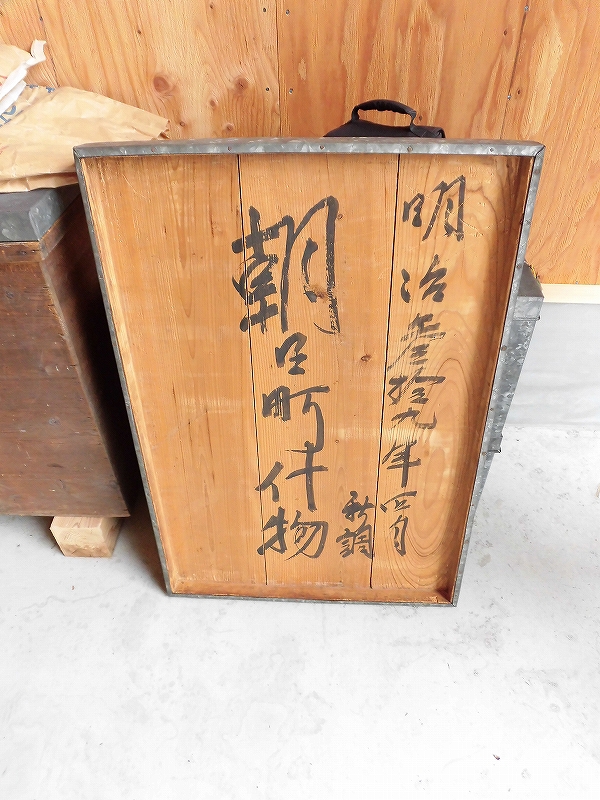 明治参拾九年四月
新調
朝日町什物